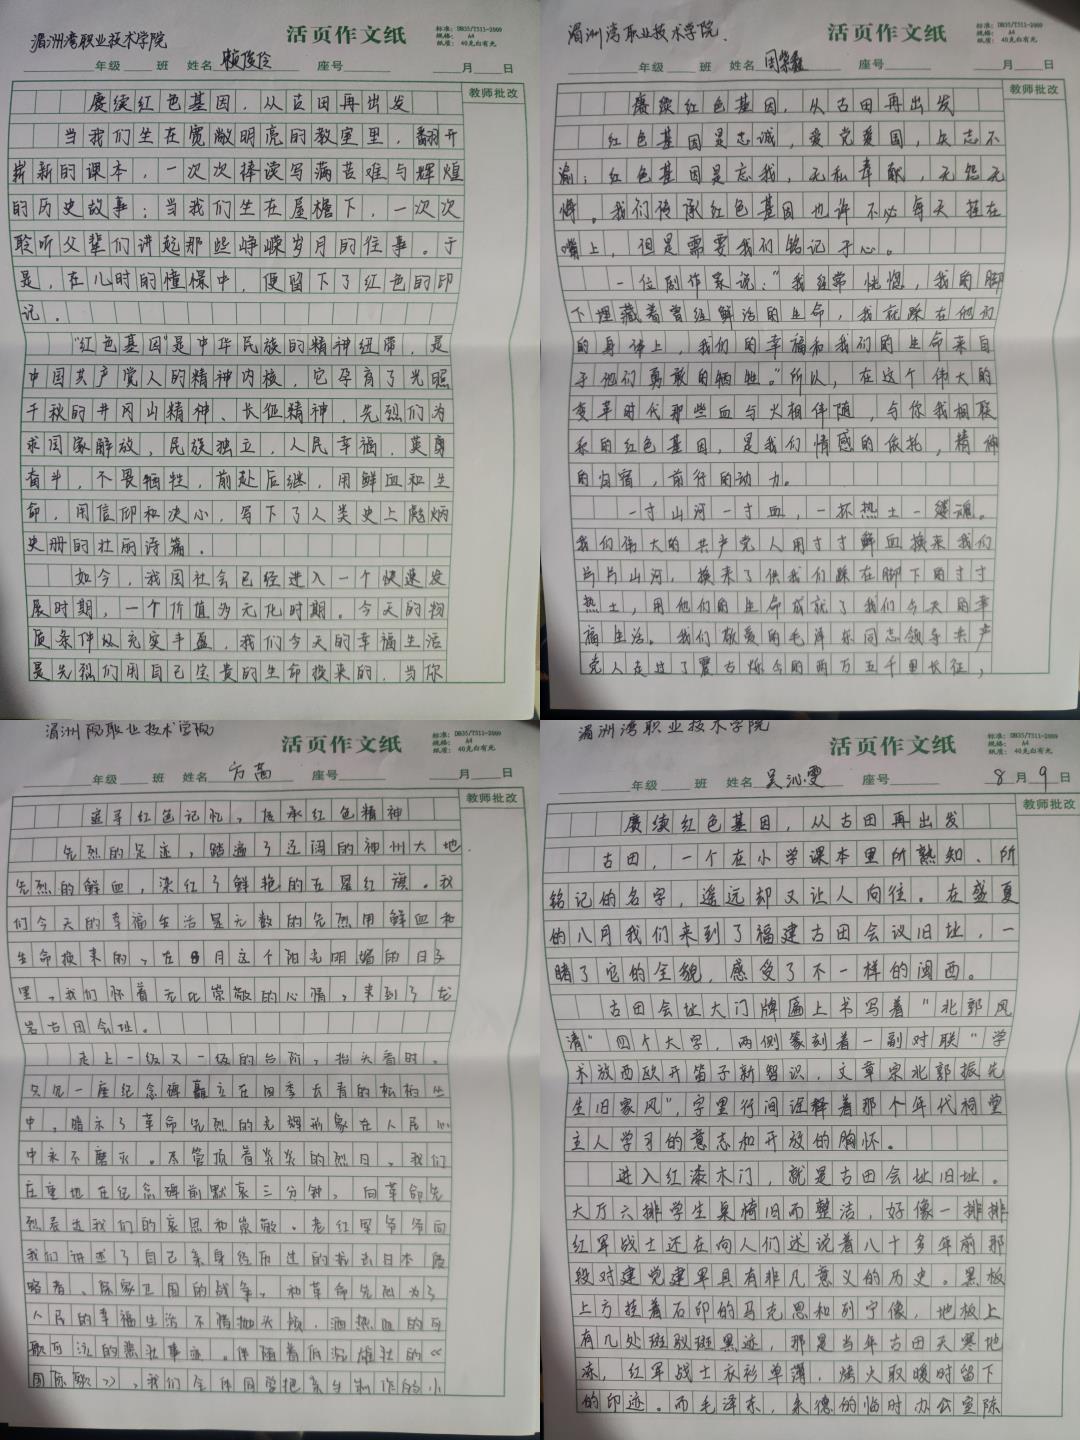 湄洲湾职业技术学院
活页作文纸
标准：DB35/T511-2009
规格： A4
纸质： 40克白有光
年级 班 姓名 赖俊伶 座号 月 日
教师批改
赓续红色基因，从古田再出发
当我们坐在宽敞明亮的教室里，翻开
崭新的课本，一次次捧读写满苦难与辉煌
的历史故事；当我们坐在屋檐下，一次次
聆听父辈们讲起那些峥嵘岁月的往事。于
是，在儿时的憧憬中，便留下了红色的印
记。
“红色基因”是中华民族的精神纽带，是
中国共产党人的精神内核，它孕育了光照
千秋的井冈山精神、长征精神，先烈们为
求国家解放，民族独立，人民幸福，英勇
奋斗，不畏牺牲，前赴后继，用鲜血和生
命，用信仰和决心，写下了人类史上彪炳
史册的壮丽诗篇。
如今，我国社会已经进入一个快速发
展时期，一个价值多元化时期。今天的物
质条件以充实丰盈，我们今天的幸福生活
是先烈们用自己宝贵的生命换来的，当你
湄洲湾职业技术学院
活页作文纸
标准：DB35/T511-2009
规格： A4
纸质： 40克白有光
年级 班 姓名 座号 月 日
教师批改
赓续红色基因，从古田再出发
红色基因是忠诚，爱党爱国，矢志不
渝；红色基因是忘我，无私奉献，无怨无
悔。我们传承红色基因也许不必每天挂在
嘴上，但是需要我们铭记于心。
一位剧作家说：“我经常恍惚，我的脚
下埋藏着曾经鲜活的生命，我就踩在他们
的身体上，我们的幸福和我们的生命来自
于他们勇敢的牺牲。”所以，在这个伟大的
变革时代那些血与火相伴随，与你我相联
系的红色基因，是我们情感的依托，精神
的归宿，前行的动力。
一寸山河一寸血，一抔热土一缕魂。
我们伟大的共产党人用寸寸鲜血换来我们
片片山河，换来了供我们踩在脚下的寸寸
热土，用他们的生命成就了我们今天的幸
福生活。我们敬爱的毛泽东同志领导共产
党人走过了震古烁今的两万五千里长征，
湄洲湾职业技术学院
活页作文纸
标准：DB35/T511-2009
规格： A4
纸质： 40克白有光
年级 班 姓名 方菡 座号 月 日
教师批改
追寻红色记忆，传承红色精神
先烈的足迹，踏遍了辽阔的神州大地，
先烈的鲜血，染红了鲜艳的五星红旗。我
们今天的幸福生活是无数的先烈用鲜血和
生命换来的，在8月这个阳光明媚的日子
里，我们怀着无比崇敬的心情，来到了龙
岩古田会址。
走上一级又一级的台阶，抬头看时，
只见一座纪念碑矗立在四季长青的松柏丛
中，暗示了革命先烈的光辉形象在人民心
中永不磨灭。尽管顶着炎炎的烈日，我们
庄重地在纪念碑前默哀三分钟，向革命先
烈表达我们的哀思和崇敬。老红军爷爷向
我们讲述了自己亲身经历过的抗击日本侵
略者、保家卫国的战争，和革命先烈为了
人民的幸福生活不惜抛头颅，洒热血的可
歌可泣的悲壮事迹。伴随着低沉雄壮的《
国际歌》，我们全体同学把亲手制作的小
湄洲湾职业技术学院
活页作文纸
标准：DB35/T511-2009
规格： A4
纸质： 40克白有光
年级 班 姓名 吴沁雯 座号 8月9日
教师批改
赓续红色基因，从古田再出发
古田，一个在小学课本里所熟知、所
铭记的名字，遥远却又让人向往。在盛夏
的八月我们来到了福建古田会议旧址，一
睹了它的全貌，感受了不一样的闽西。
古田会址大门牌匾上书写着“北郭风
清”四个大字，两侧篆刻着一副对联“学
术放西欧开笛子新智识，文章宋北郭振先
生旧家风”，字里行间诠释着那个年代祠堂
主人学习的意志和开放的胸怀。
进入红漆木门，就是古田会址旧址。
大厅六排学生桌椅旧而整洁，好像一排排
红军战士还在向人们述说着八十多年前那
段对建党建军具有非凡意义的历史。黑板
上方挂着石印的马克思和列宁像，地板上
有几处斑驳斑黑迹，那是当年古田天寒地
冻，红军战士衣衫单薄，烤火取暖时留下
的印迹。而毛泽东，朱德的临时办公室陈